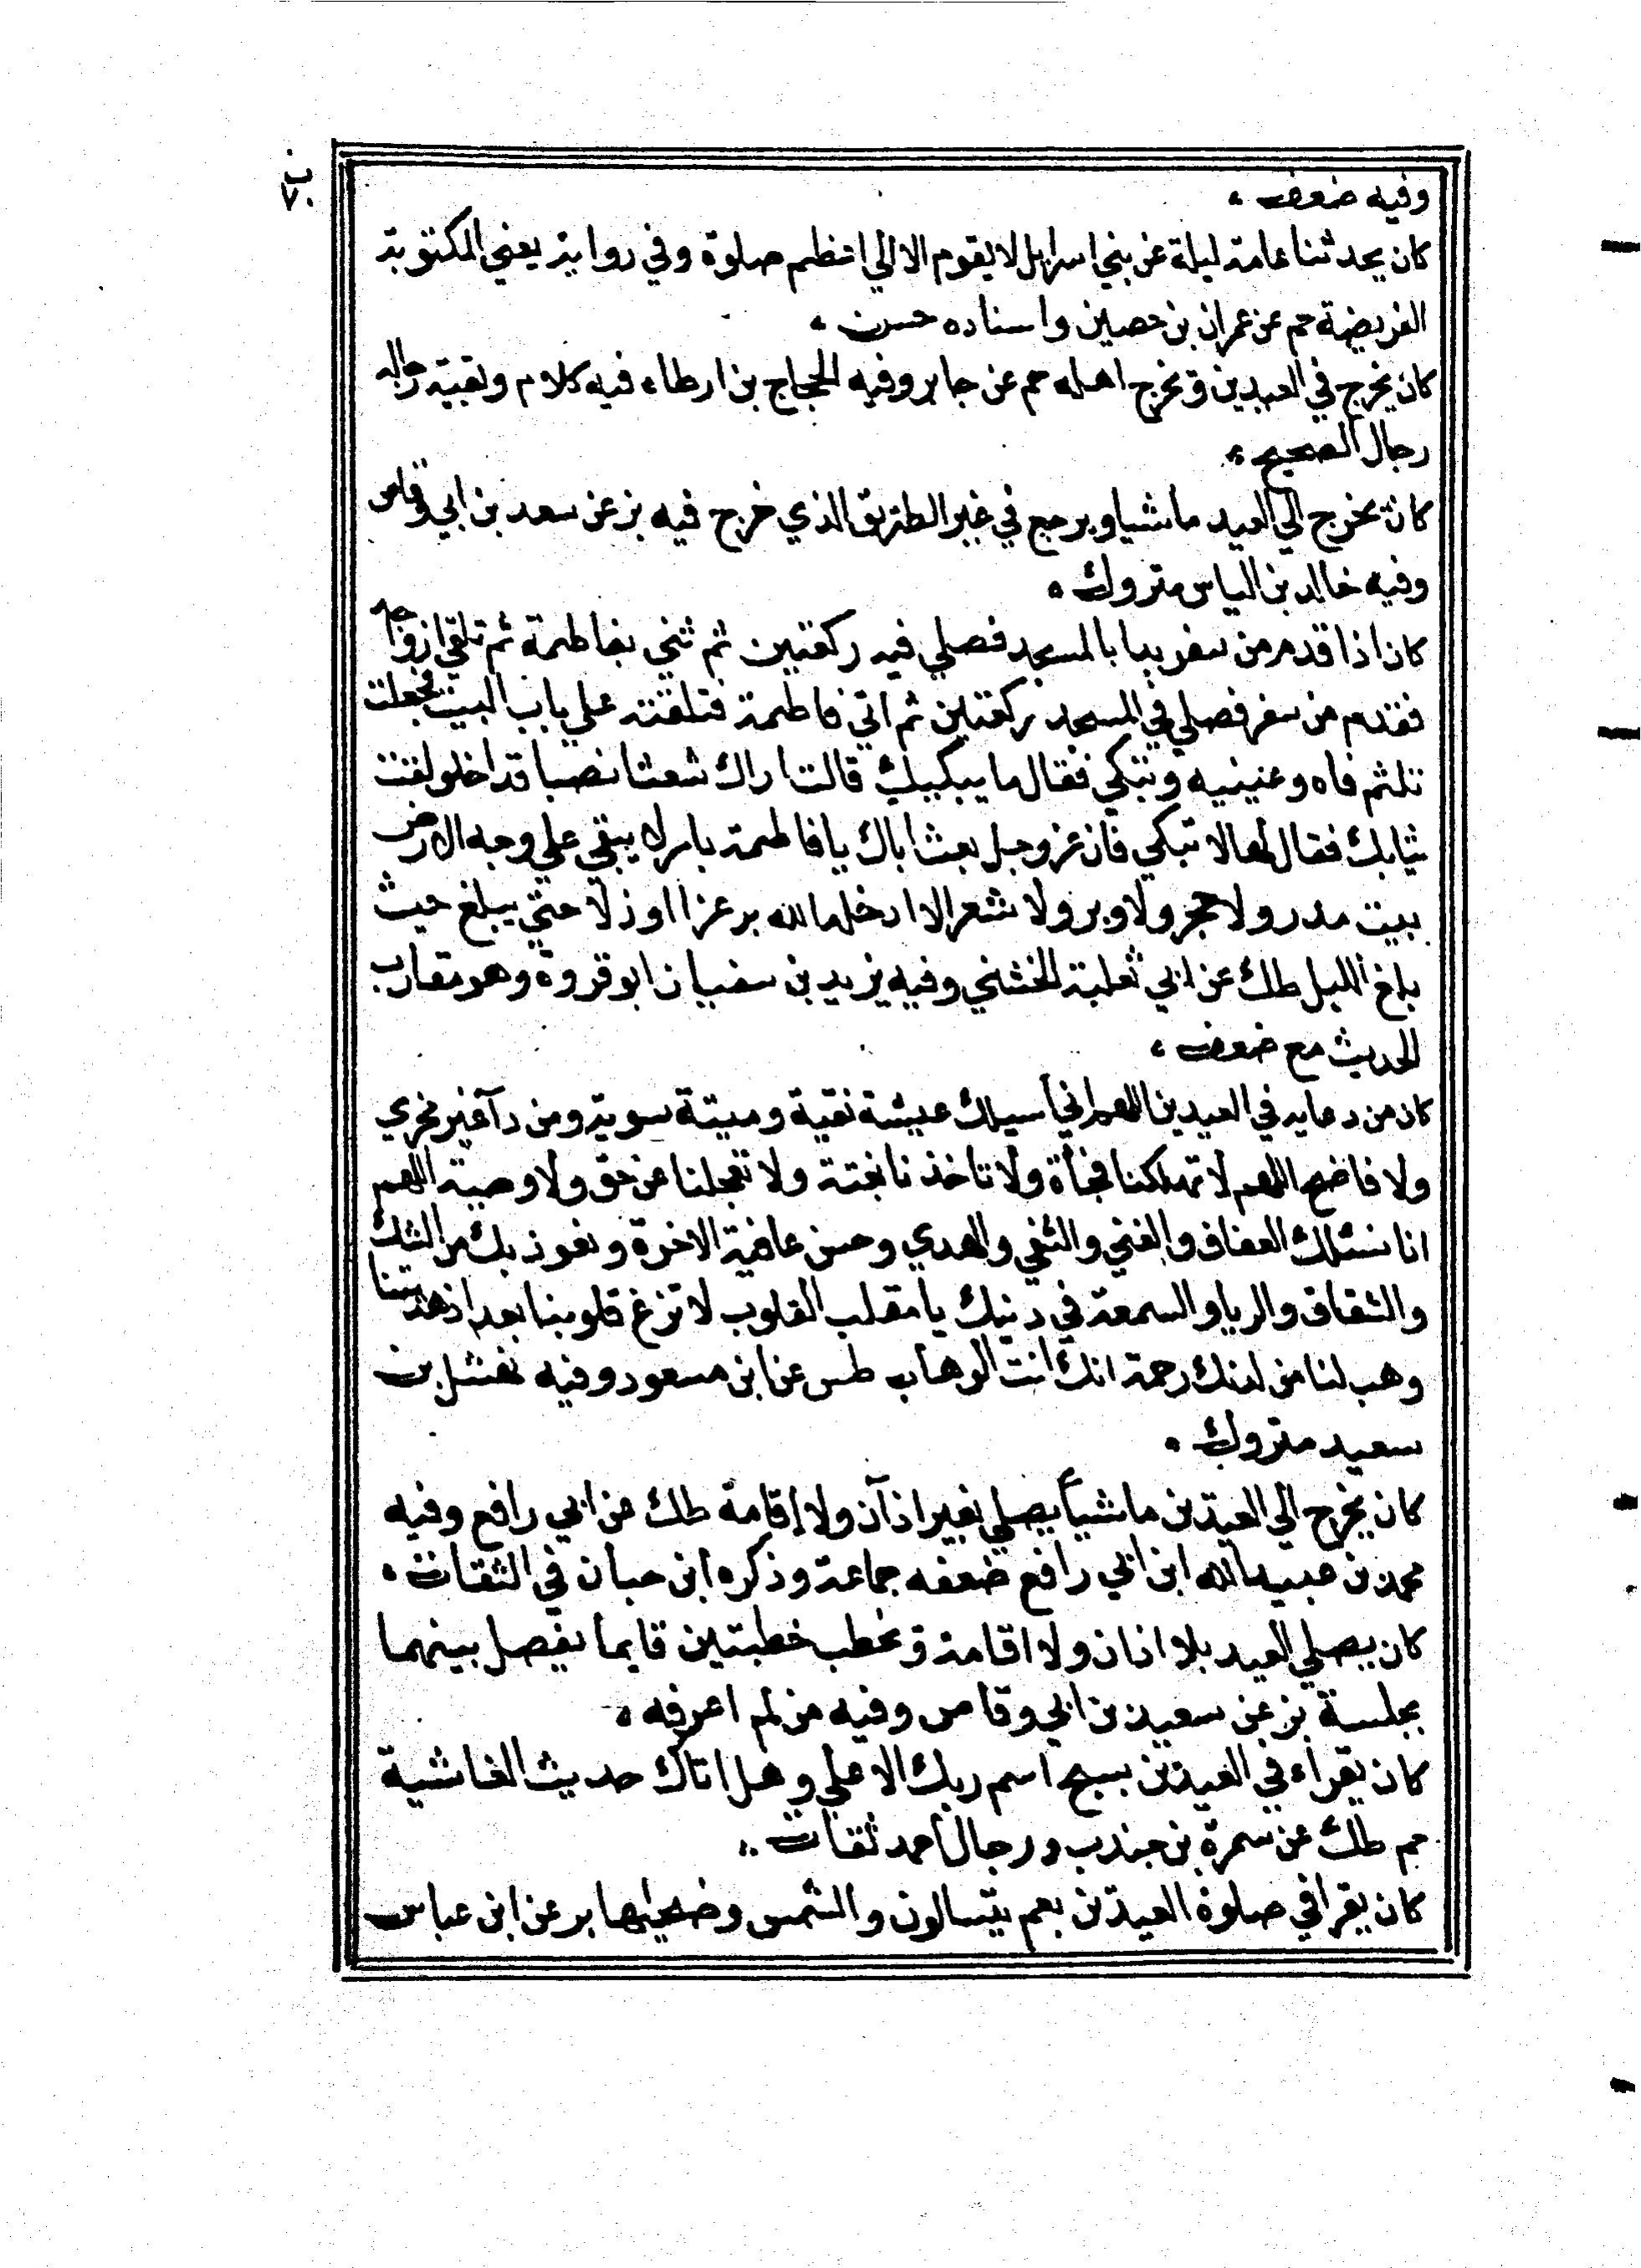 ب
٧٠
وفيه ضعف ،
كان يحدثنا عامة ليلة عن بني اسرايل لا يقوم الا الي اعظم صلوة وفي رواية يعني المكتوبة
الفريضة حم عن عمران بن حصين واسناده حسن ،
كان يخرج في العيدين ويخرج اهله حم عن جابر وفيه الحجاج بن ارطاه فيه كلام وبقية رجاله
رجال الصحيح ،
كان يخرج الي العيد ماشيا ويرجع في غير الطريق الذي خرج فيه بز عن سعد بن ابي وقاص
وفيه خالد بن الياس متروك ،
كان اذا قدم من سفر بدا بالمسجد فصلي فيه ركعتين ثم ثني بفاطمة ثم تلقي ازواجه
فقدم من سفر فصلي في المسجد ركعتين ثم اتي فاطمة فتلقته علي باب البيت فجعلت
تلثم فاه وعينيه وتبكي فقال ما يبكيك قالت اراك شعثا نصبا قد اخلولقت
ثيابك فقال لها لا تبكي فان عز وجل بعث اباك يا فاطمة بامر لا يبقي علي وجه الارض
بيت مدر ولا حجر ولا وبر ولا شعر الا ادخله الله به عزا او ذلا حتي يبلغ حيث
بلغ الليل طك عن ابي ثعلبة الخشني وفيه يزيد بن سفيان ابو قروة وهو مقارب
الحديث مع ضعف ،
كان من دعايه في العيدين اللهم اني اسيلك عيشة نقية وميتة سوية ومن دآ غير مخزي
ولا فاضح اللهم لا تهلكنا فجأة ولا تاخذنا بغتة ولا تعجلنا عن حق ولا وصية اللهم
انا نسئلك العفاف والغني والتقي والهدي وحسن عاقبة الاخرة ونعوذ بك من الشك
والشقاق والريا والسمعة في دينك يا مقلب القلوب لا تزغ قلوبنا بعد اذ هديتنا
وهب لنا من لدنك رحمة انك انت الوهاب طس عن ابن مسعود وفيه نهشل بن
سعيد متروك ،
كان يخرج الي العيدين ماشيأ يصلي بغير اذآن ولا إقامة طك عن ابي رافع وفيه
محمد بن عبيد الله ابن ابي رافع ضعفه جماعة وذكره ابن حبان في الثقات ،
كان يصلي العيد بلا اذان ولا اقامة ويخطب خطبتين قايما يفصل بينهما
بجلسة بز عن سعيد بن ابي وقاص وفيه من لم اعرفه ،
كان يقراء في العيدين بسبح اسم ربك الاعلي وهل اتاك حديث الغاشية
حم طك عن سمرة بن جندب ورجال احمد ثقات ..
كان يقرا في صلوة العيدين بعم يتسالون والشمس وضحيها بر عن ابن عباس